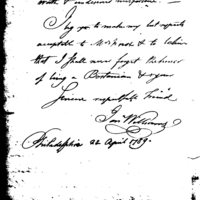 I beg you to make my best respects
acceptable to Mrs & to believe
that I shall never forget the honor
of being a Bostonian & your
Sincere respectful Friend
Jon Williams
Philadelphia 22 April 1789.